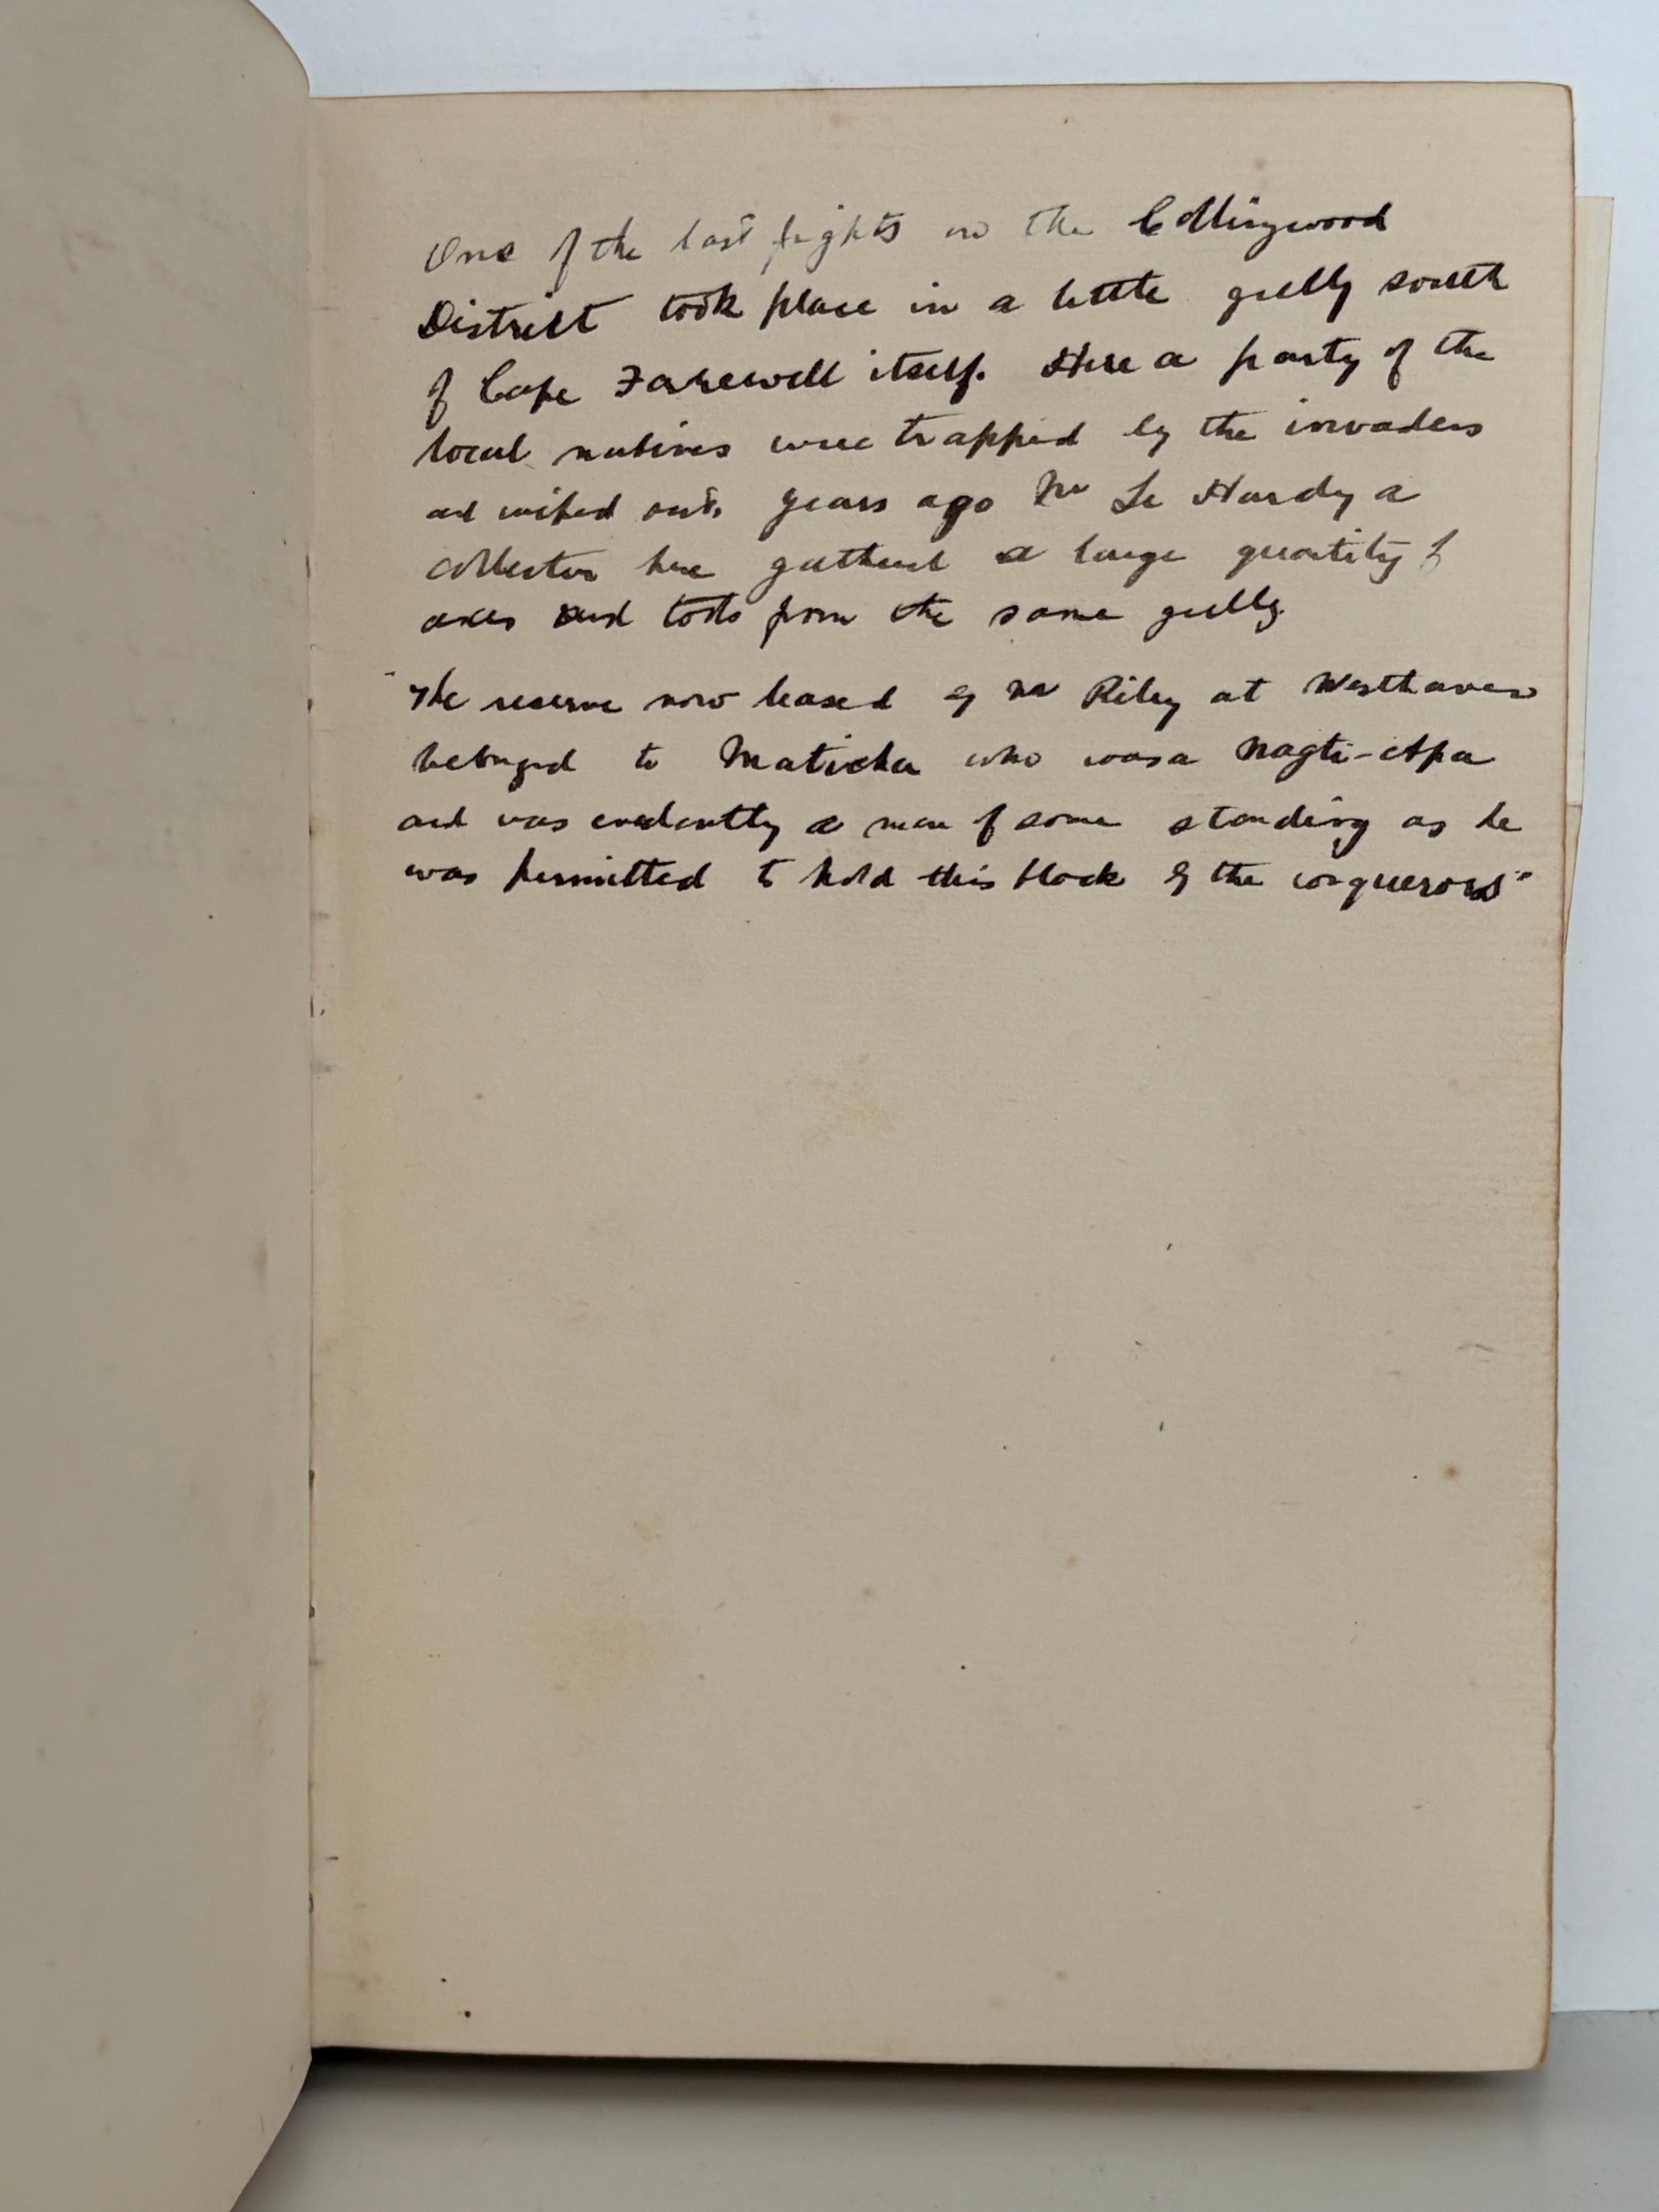 One of the last fights in the Collingwood
District took place in a little gully south
of Cape Farewell itself. Here a party of the
local natives were trapped by the invaders
and wiped out. Years ago Mr Le Hardy a
collector here gathered a large quantity of
axes and tools from the same gully.
"The reserve now leased by Mr Riley at Westhaven
belonged to who was a Nagti-Apa
and was evedently a man of some standing as he
was permitted to hold this block by the conquerors"